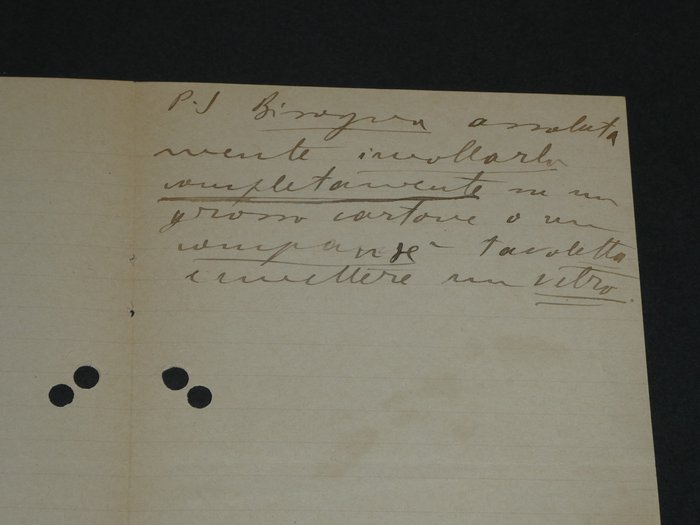 P.S Bisogna assoluta
mente incollarlo
completamente su un
grosso cartone o un
tavoletta
e mettere un vetro.